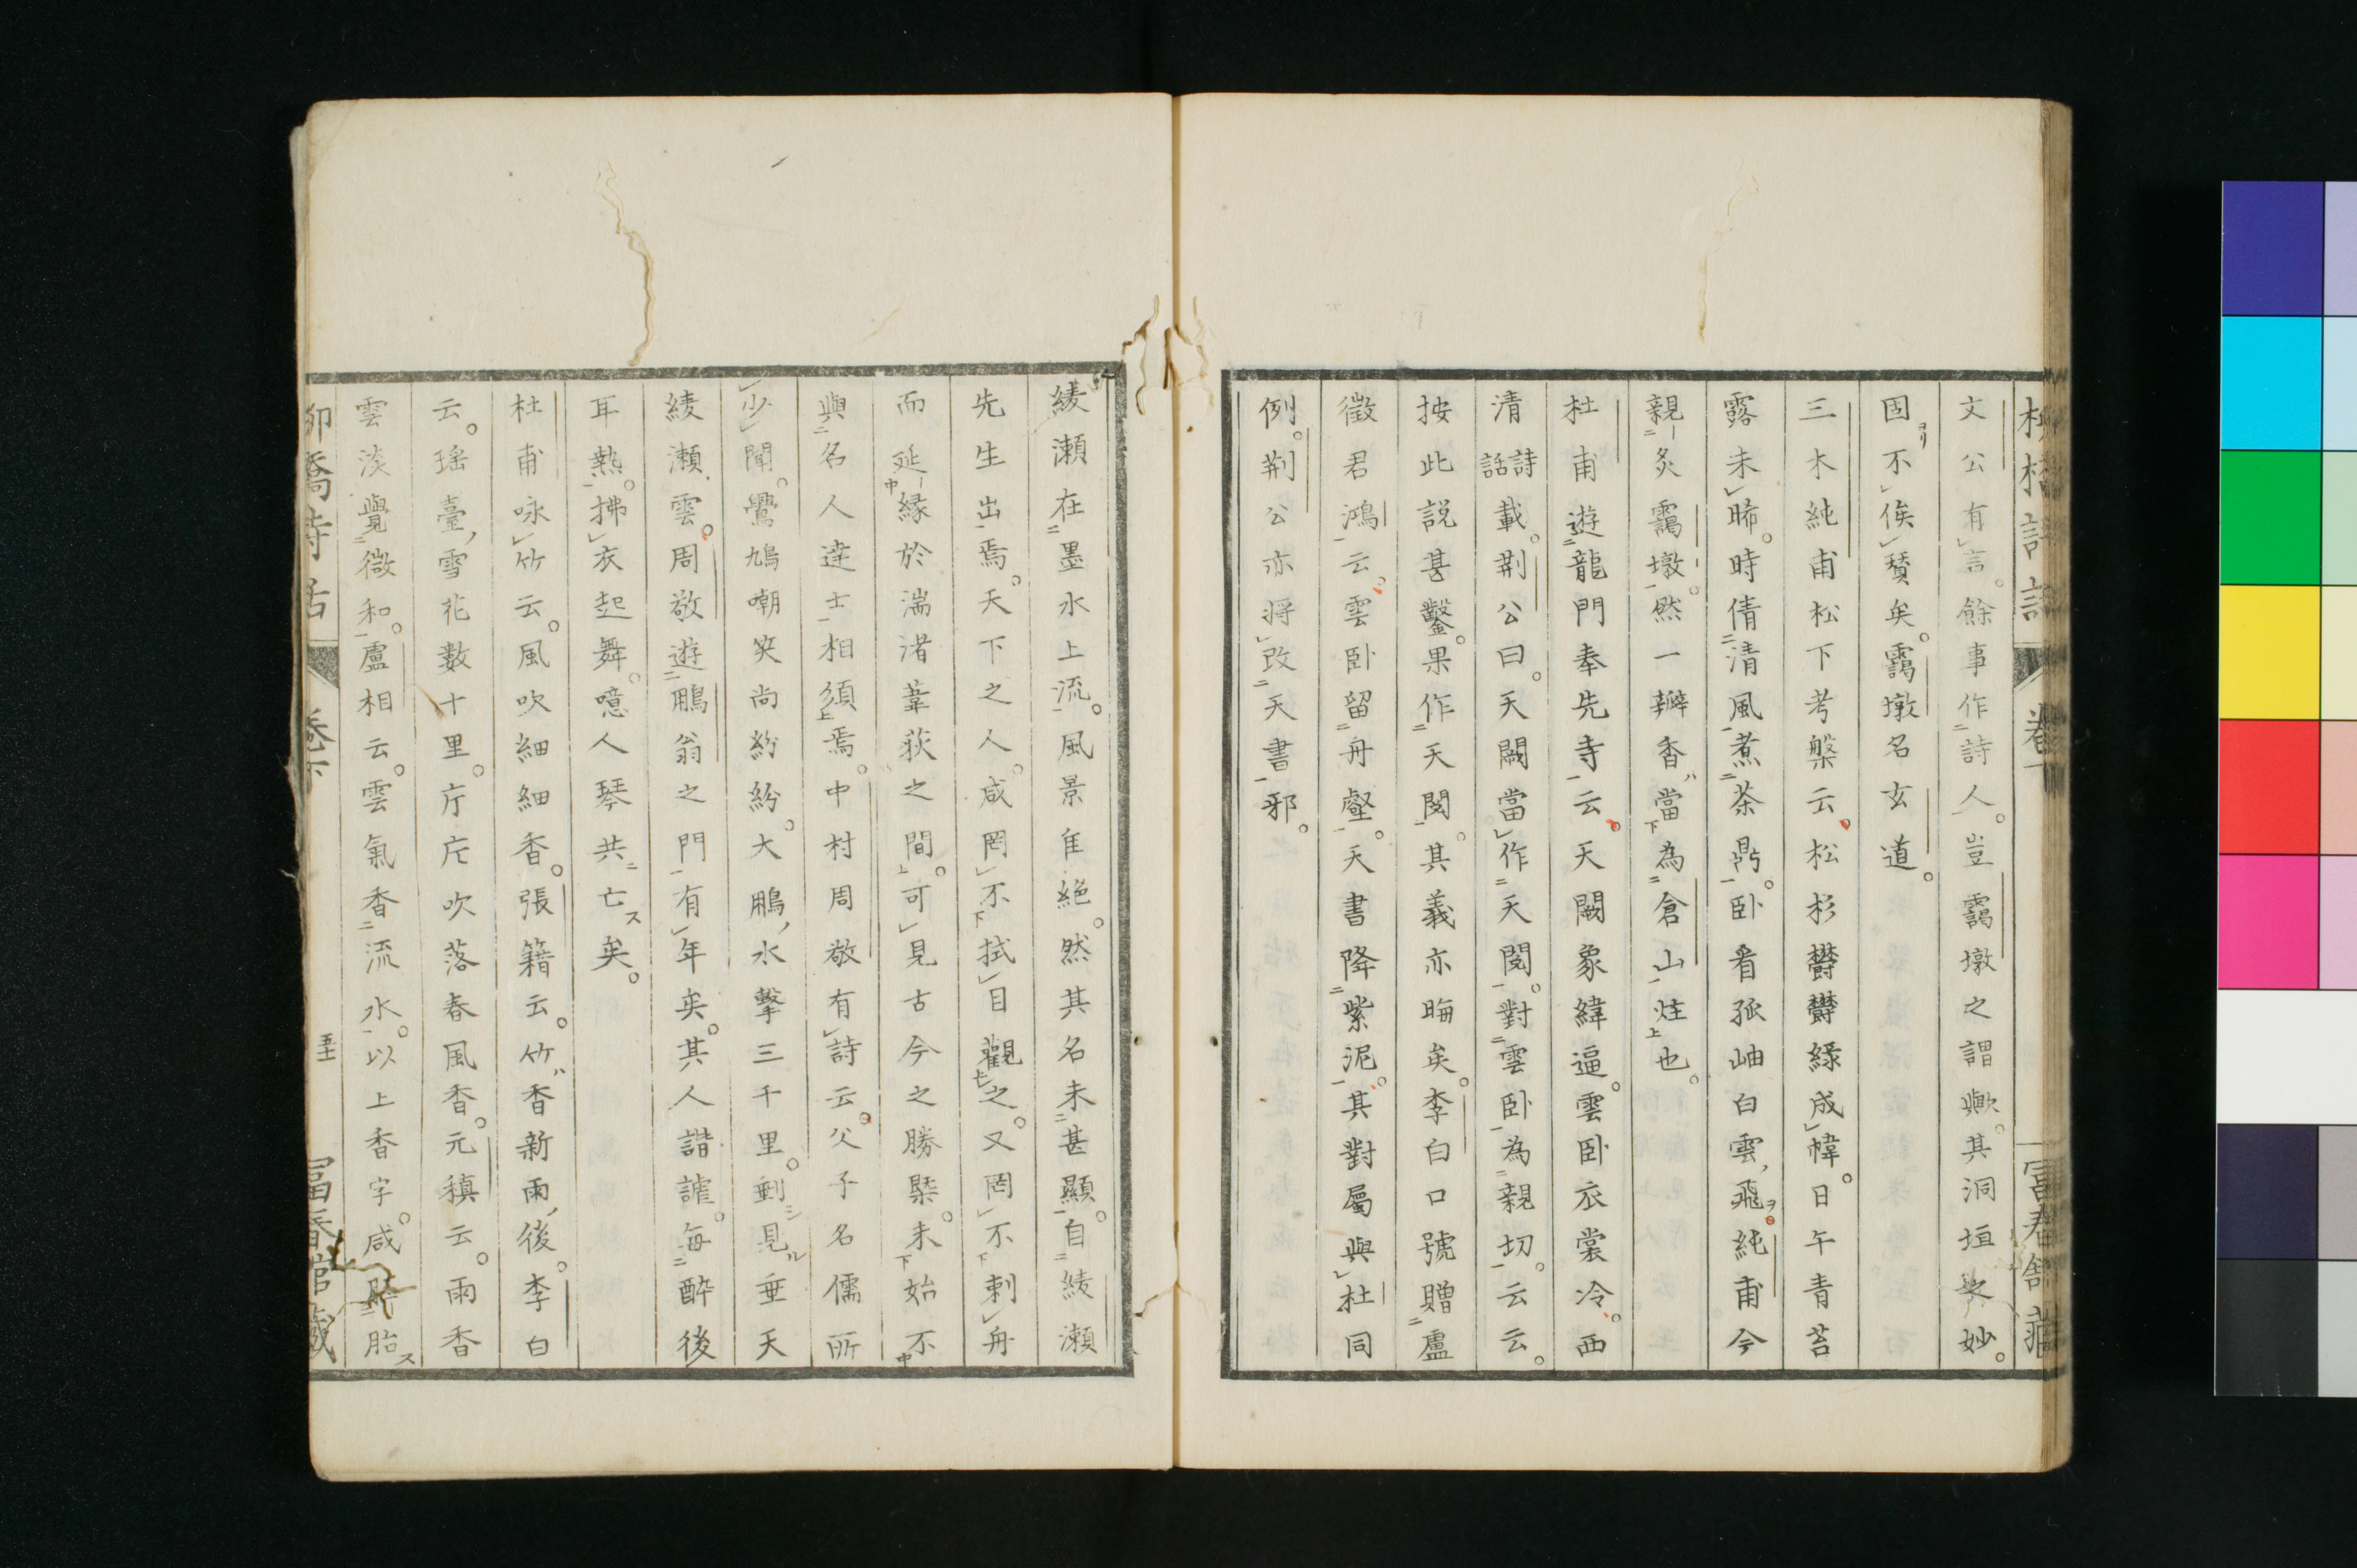 文公有言。餘事作詩人。豈靄墩之謂歟。其洞垣之妙。
固不俟贅矣。靄墩名玄道。
三木純甫松下考槃云。松杉欝欝緑成幃。日午青苔
露未晞。時倩清風煮茶鼎。臥看孤岫白雲飛。純甫今
親炙靄墩。然一瓣香ハ當為倉山炷也。
杜甫遊龍門奉先寺云。天闕象緯逼。雲臥衣裳冷。西
清詩話載。荆公曰。天闕當作天閲。對雲臥為親切。云云。
按此説甚鑿。果作天閲。其義亦晦矣。李白口號贈盧
徵君鴻云。雲臥留舟壑。天書降紫泥。其對屬與杜同
例。荆公亦將改天書邪。
卷
綾瀬在墨水上流。風景隹絶。然其名未甚顯。自綾瀬
先生出焉。天下之人。咸罔不拭目觀之。又罔不剌舟
而延縁於湍渚葦荻之間。可見古今之勝槩。未始不
與名人達士相須焉。中村周敬有詩云。父子名儒所
少聞。鷽鳩嘲笑尚紛紛。大鵬水擊三千里。剰見垂天
綾瀬雲。周敬遊鵬翁之門有年矣。其人諧謔。每醉後
耳熱。拂衣起舞。噫人琴共亡ス矣。
杜甫咏竹云。風吹細細香。張籍云。竹香新雨後。李白
云。瑶臺雪花數十里。片片吹落春風香。元稹云。雨香
雲淡覺微和。盧相云。雲氣香流水。以上香字。咸胎ス